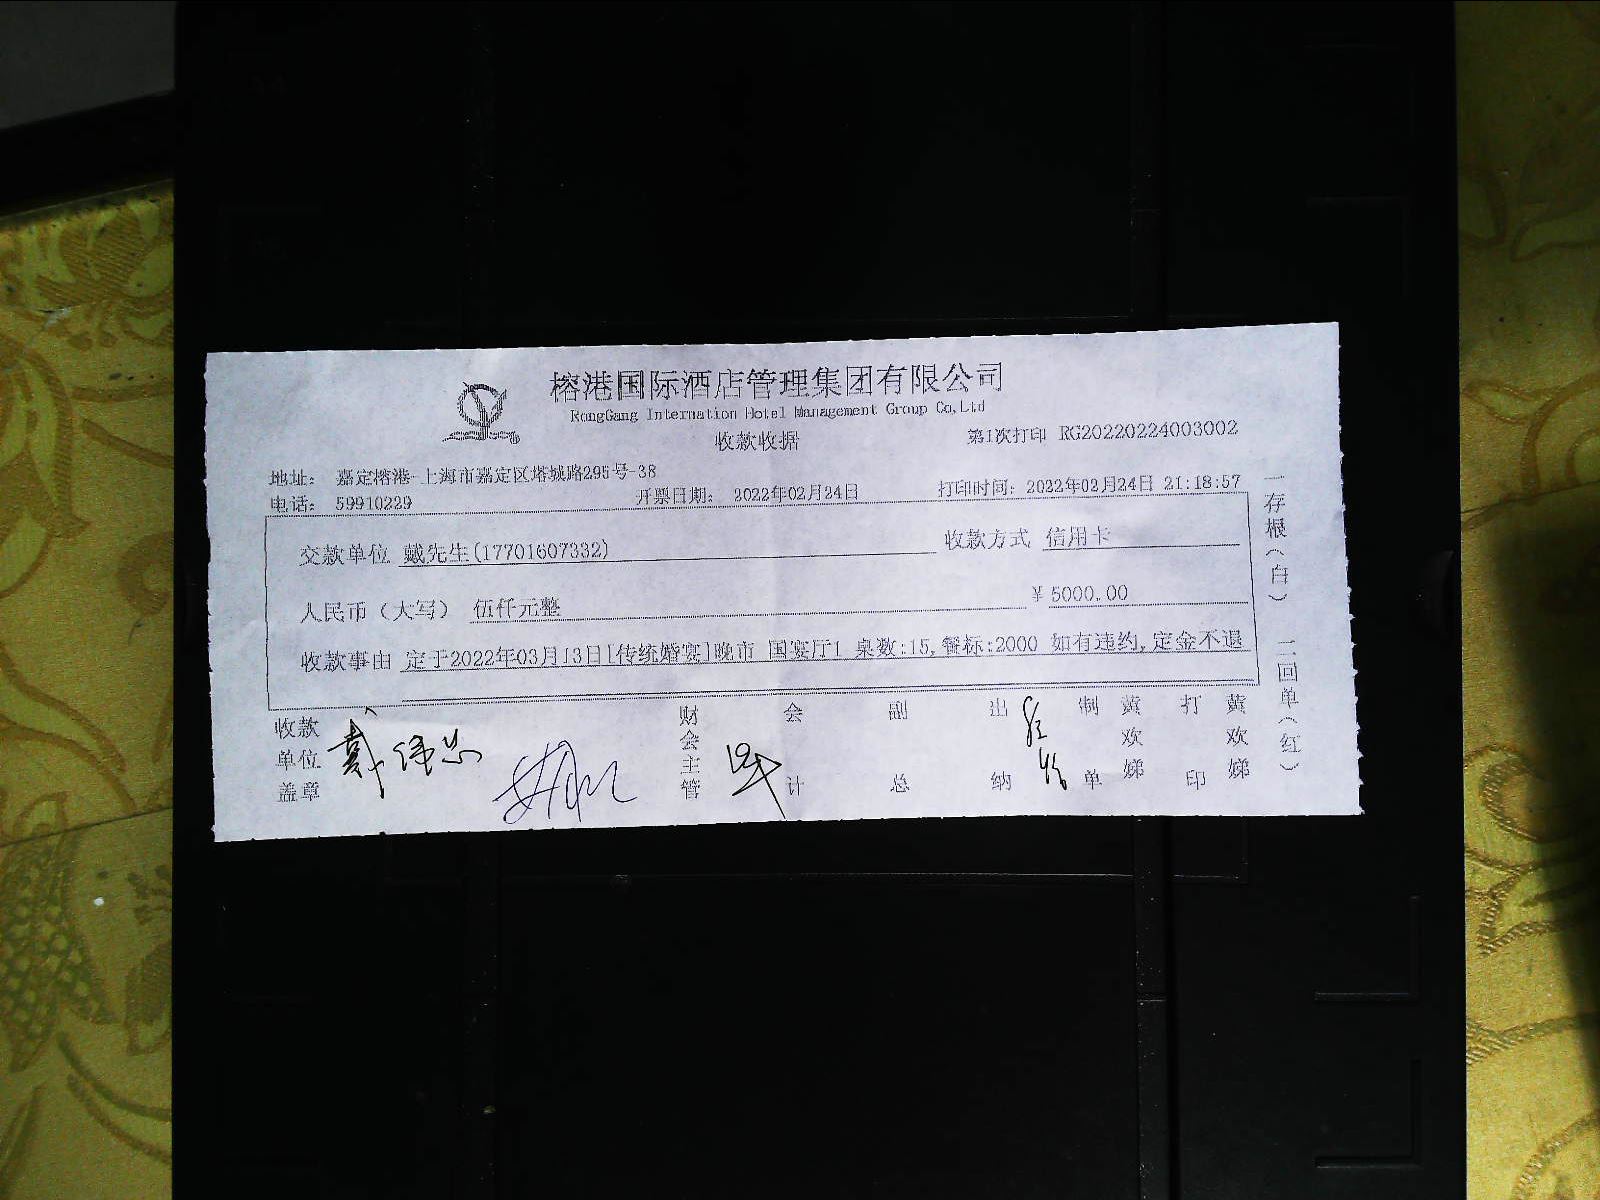 榕港国际酒店管理集团有限公司
RongGang Internation Hotel Management Group Co,Ltd
收款收据
第1次打印 RG20220224003002
地址： 嘉定榕港-上海市嘉定区塔城路295号-38
电话： 59910229
开票日期： 2022年02月24日
打印时间：2022年02月24日 21:18:57
交款单位 戴先生(17701607332)
收款方式 信用卡
人民币（大写） 伍仟元整
￥5000.00
收款事由 定于2022年03月13日[传统婚宴]晚市 国宴厅1 桌数:15,餐标:2000 如有违约,定金不退
收款单位盖章
财会主管
会计
副总
出纳
制单
黄欢娣
打印
黄欢娣
一存根（白） 二回单（红）